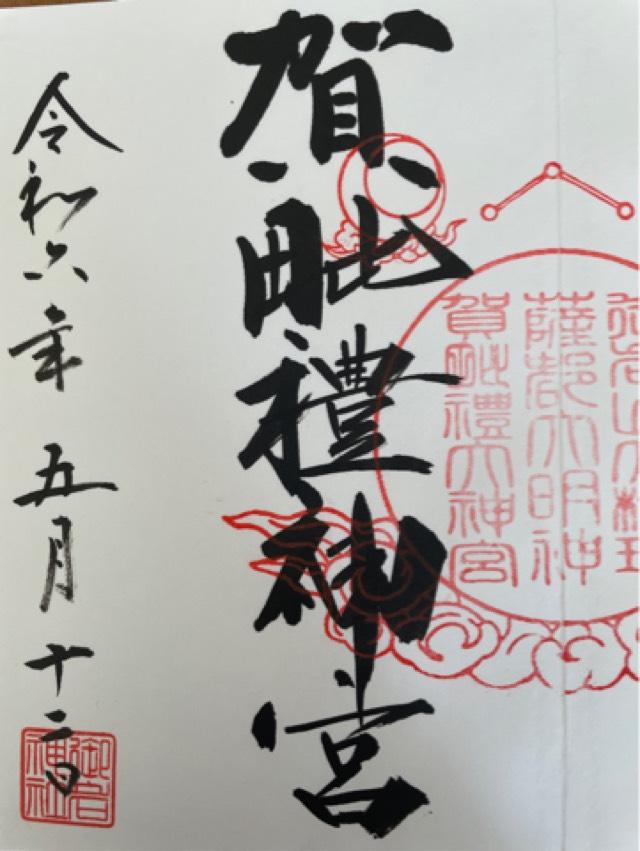 薩都大明神
賀毗禮大神宮
賀毗禮神宮
令和六年 五月十二日
御岩神社